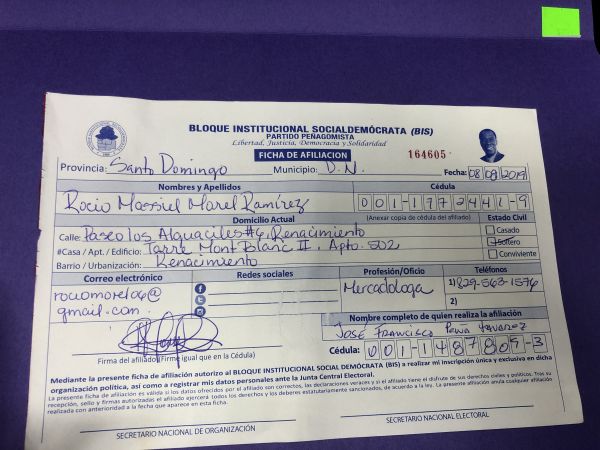 BLOQUE INSTITUCIONAL SOCIALDEMÓCRATA (BIS)
PARTIDO PEÑAGOMISTA
Libertad, Justicia, Democracia y Solidaridad
FICHA DE AFILIACION
164605
Provincia: Santo Domingo Municipio: D.N. Fecha: 08/08/2019
Nombres y Apellidos Cédula
Rocio Massiel Morel Ramírez 001-1772441-9
Domicilio Actual (Anexar copia de cédula del afiliado) Estado Civil
Calle: Paseo los Alguaciles #6, Renacimiento Casado
#Casa / Apt. / Edificio: Torre Mont Blanc II, Apto. 502 Soltero
Barrio / Urbanización: Renacimiento Conviviente
Correo electrónico Redes sociales Profesión/Oficio Teléfonos
rociomorel06@ Mercadologa 1) 829-563-1576
gmail.com 2)
Nombre completo de quien realiza la afiliación
José Francisco Peña
Cédula: 001-1487809-3
Firma del afiliado (Firme igual que en la Cédula)
Mediante la presente ficha de afiliación autorizo al BLOQUE INSTITUCIONAL SOCIAL DEMÓCRATA (BIS) a realizar mi inscripción única y exclusiva en dicha
organización política, así como a registrar mis datos personales ante la Junta Central Electoral.
La presente ficha de afiliación es válida si los datos ofrecidos por el afiliado son correctos, las declaraciones veraces y si el titular tiene el disfrute de sus derechos civiles y políticos. Tras su
recepción, sello y firmas autorizadas el afiliado ejercerá todos los derechos y los deberes estatutariamente sancionados, de acuerdo a la ley. La presente afiliación anula cualquier afiliación
realizada con anterioridad a la fecha que aparece en esta ficha.
SECRETARIO NACIONAL DE ORGANIZACIÓN SECRETARIO NACIONAL ELECTORAL